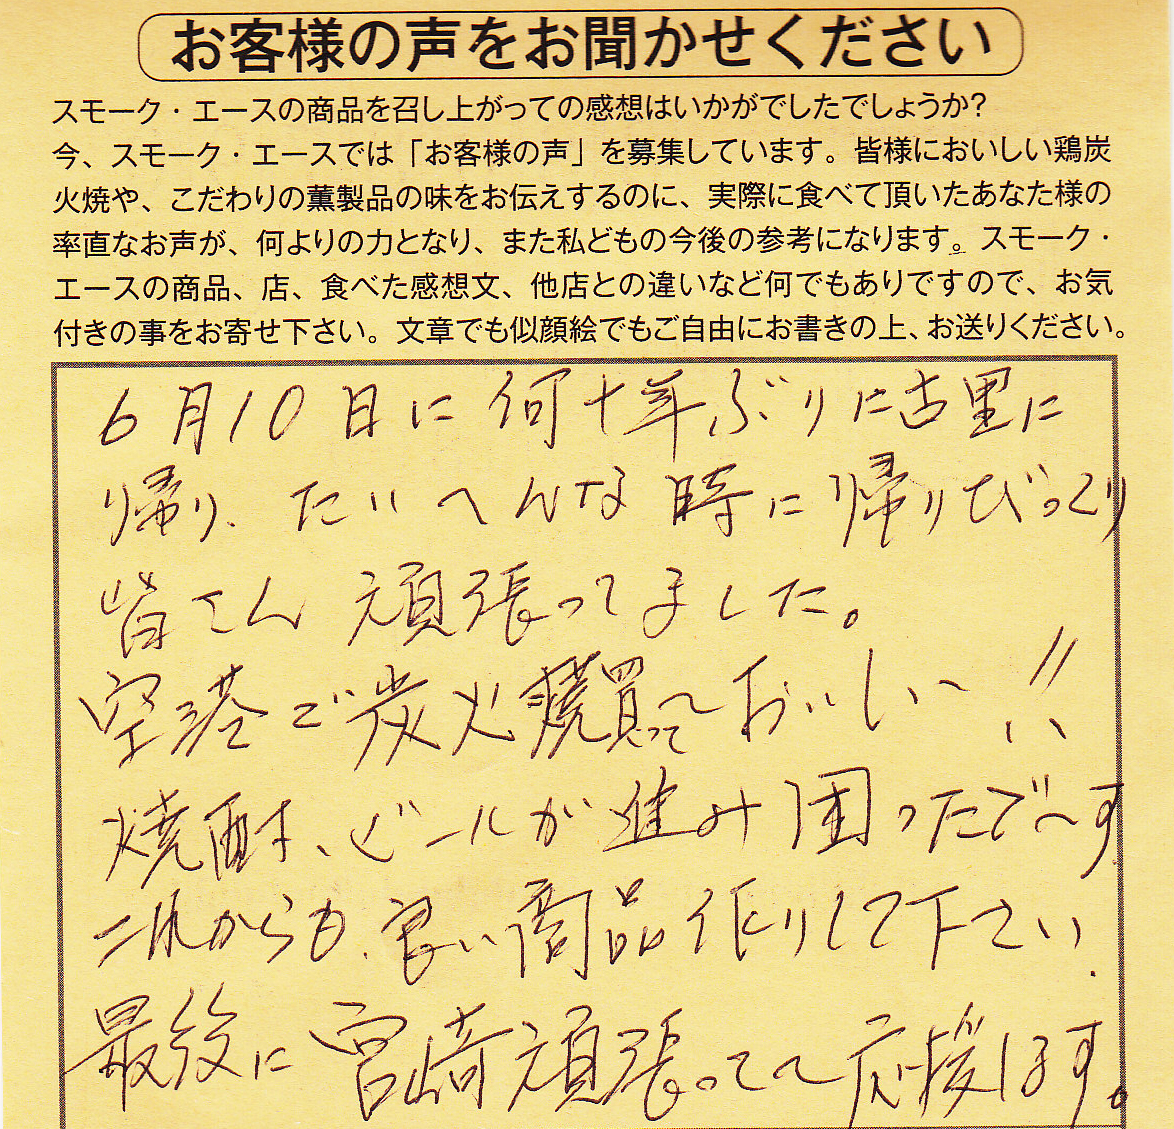 お客様の声をお聞かせください
スモーク・エースの商品を召し上がっての感想はいかがでしたでしょうか?
今、スモーク・エースでは「お客様の声」を募集しています。皆様においしい鶏炭
火焼や、こだわりの薫製品の味をお伝えするのに、実際に食べて頂いたあなた様の
率直なお声が、何よりの力となり、また私どもの今後の参考になります。スモーク・
エースの商品、店、食べた感想文、他店との違いなど何でもありですので、お気
付きの事をお寄せ下さい。文章でも似顔絵でもご自由にお書きの上、お送りください。
6月10日に何十年ぶりに古里に
帰り、たいへんな時に帰りびっくり
皆さん頑張ってました。
空港で炭火焼買って〜おいし〜い!!
焼酎、ビールが進み困ったで〜す
これからも、良い商品作りして下さい.
最後に宮崎頑張ってて〜応援します。